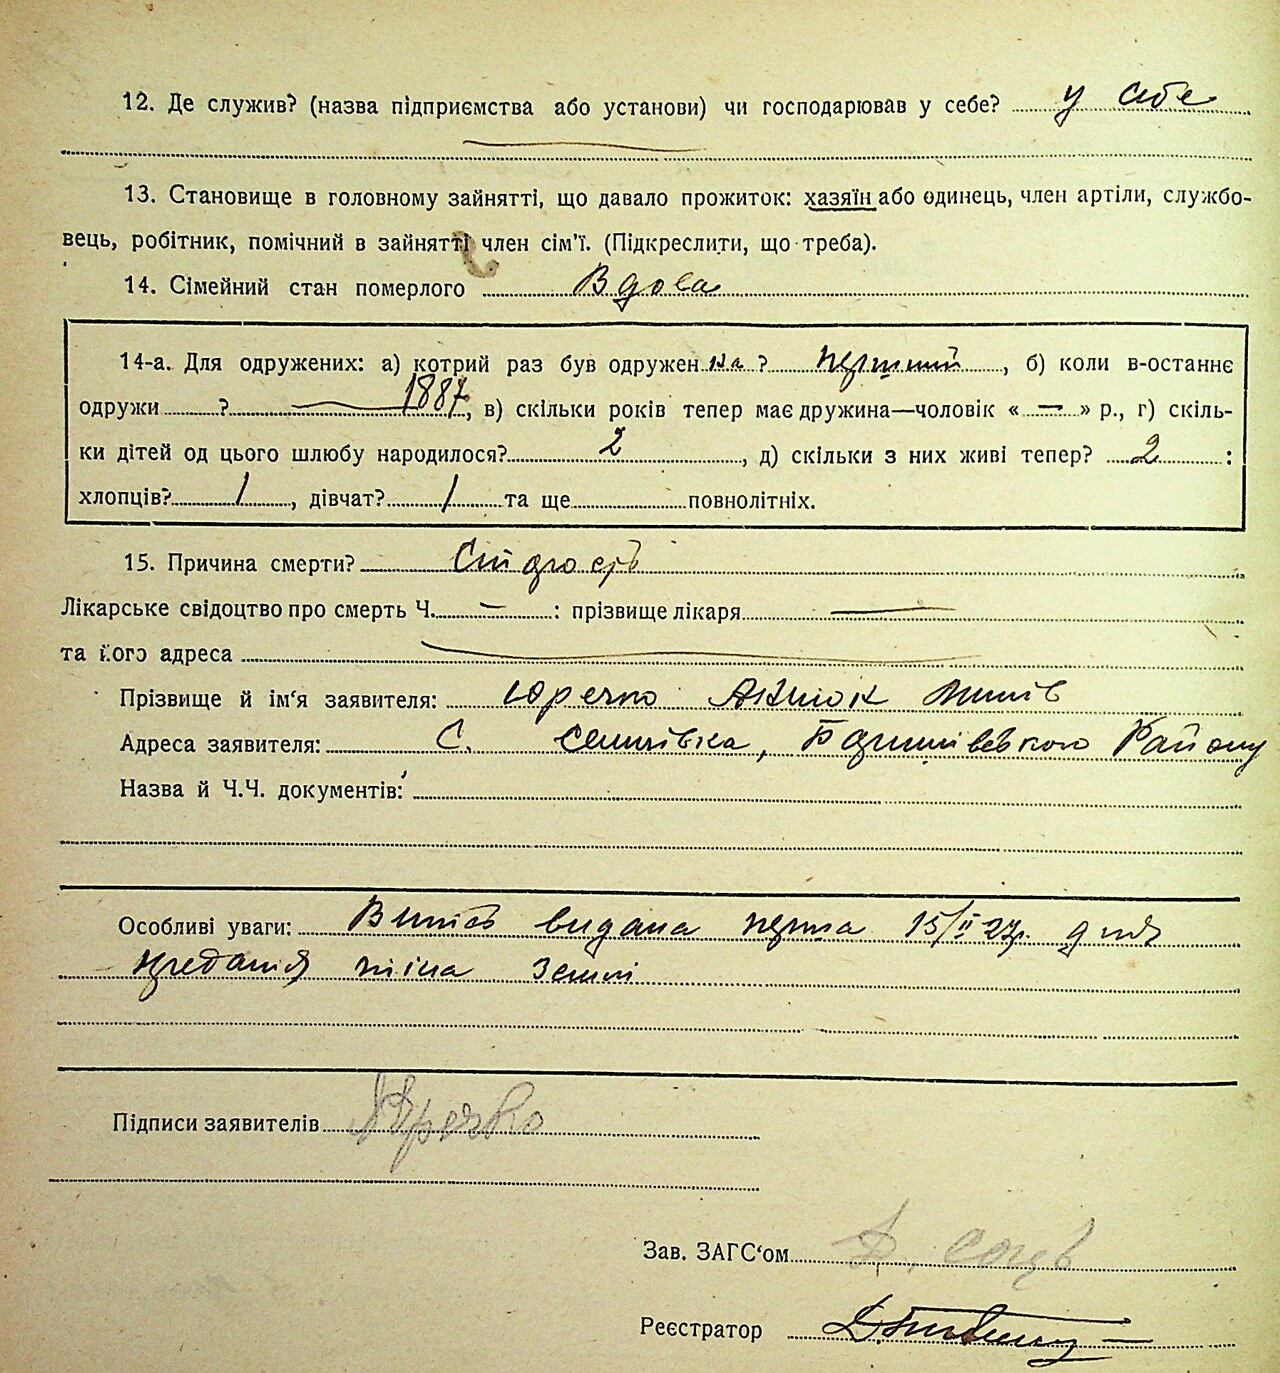 12. Де служив? (назва підприємства або установи) чи господарював у себе? у себе
13. Становище в головному зайнятті, що давало прожиток: хазяїн або одинець, член артіли, службо-
вець, робітник, помічний в зайнятті член сім'ї. (Підкреслити, що треба).
14. Сімейний стан померлого Вдова
14-а. Для одружених: а) котрий раз був одружен на ? перший, б) коли в-останнє
одружи ? 1887, в) скільки років тепер має дружина—чоловік « — » р., г) скіль-
ки дітей од цього шлюбу народилося? 2, д) скільки з них живі тепер? 2 :
хлопців? 1, дівчат? 1 та ще повнолітніх.
15. Причина смерти? Старость
Лікарське свідоцтво про смерть Ч. — : прізвище лікаря —
та його адреса —
Прізвище й ім'я заявителя: Юречко
Адреса заявителя: С. Семенівка, Баришівського Району
Назва й Ч.Ч. документів:
Особливі уваги: Випис видана перша 15/II 27р. для
предания тіла землі
Підписи заявителів Юречко
Зав. ЗАГС'ом
Реєстратор